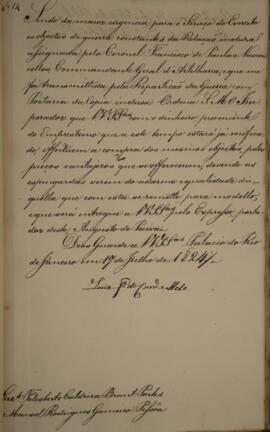 Nº 14
Sendo da maior urgencia para o Serviço do Exercito
os objectos de guerra constantes da Relação inclusa
assignada pelo Coronel Francisco de Paula e Vascon
cellos Commandante Geral d'Artilharia, que me
foi transmittida pela Repartição da Guerra com
Portaria da Copia inclusa: Ordena S. M. O Im
perador que V.V. Ex.as com o dinheiro proveniente
do Emprestimo que a este tempo estará já verifica
do, effeituem a compra dos mesmos objectos pelos
preços vantajosos que se offerecerem, devendo as
espingardas serem do adarme e qualidade da
quella que com esta se remette para modello,
e que será entregue a V.V. Ex.as pelo Expresso, porta
dor deste, Augusto de Paiva.
Deos Guarde a V.V. Ex.as Palacio do Rio
de Janeiro em 17 de Julho de 1824
Luiz Jé de Carv.º e Mello
Felisberto Caldeira Brant Pontes
Manoel Rodrigues Gameiro Pessôa